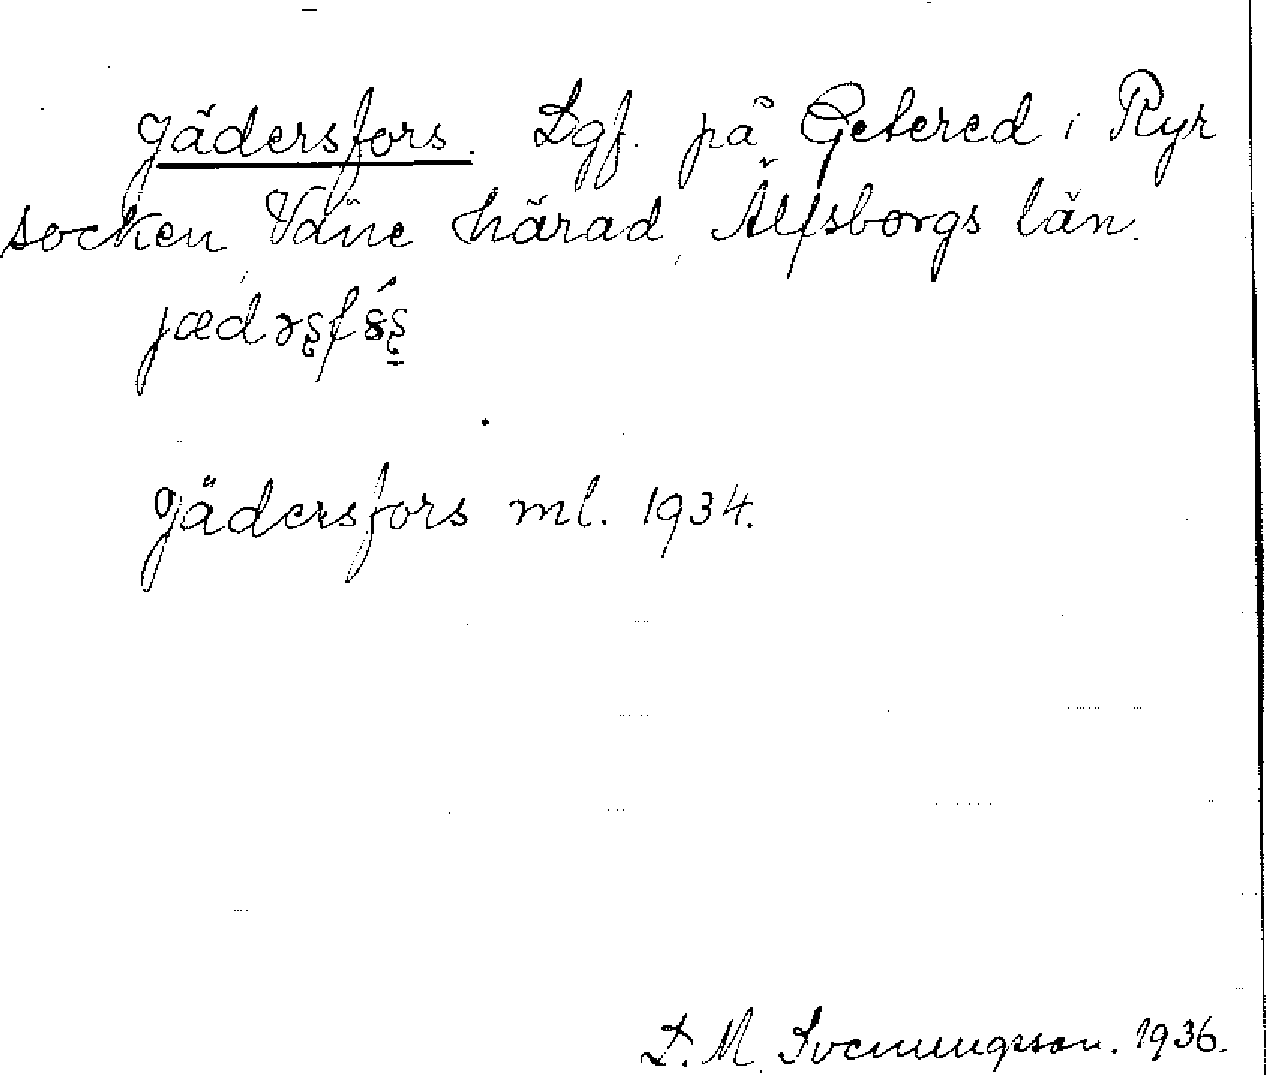 Gädersfors. Lgf. på Getered i Ryr
socken Väne härad, Älfsborgs län.
Gädersfors ml. 1934.
D. M. Svenungsson. 1936.